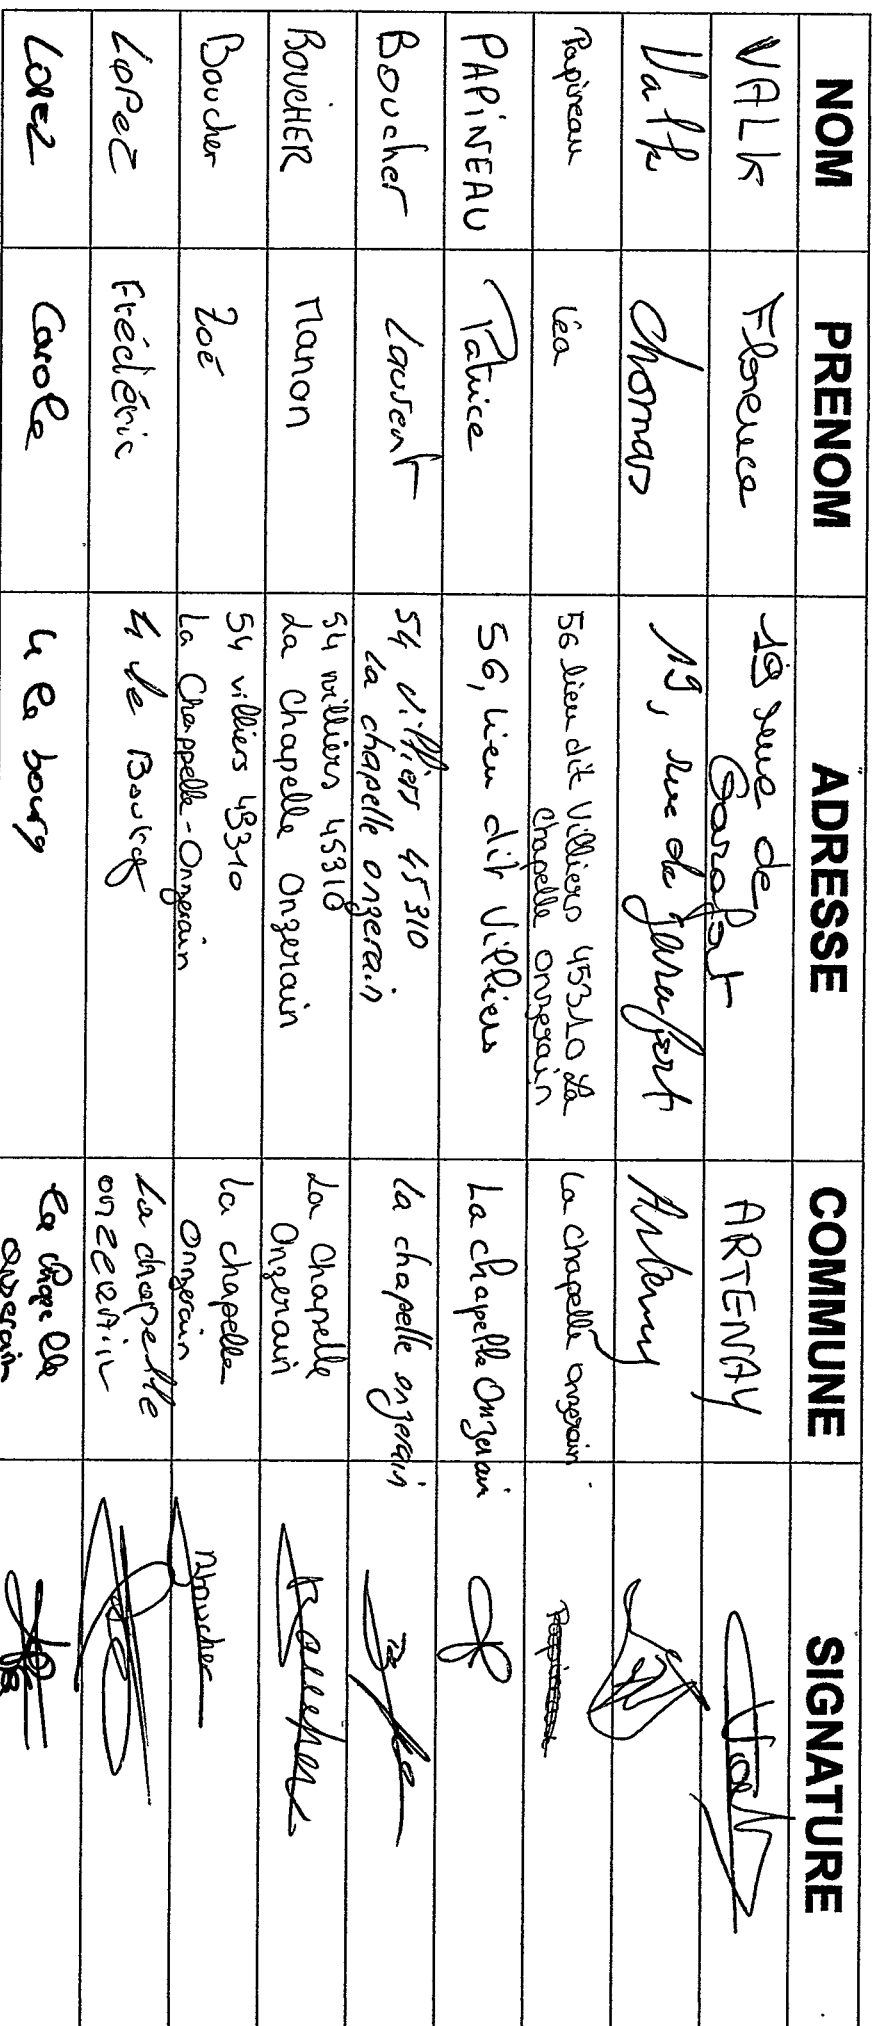 NOM PRENOM ADRESSE COMMUNE SIGNATURE
VALK Florence 19 rue de Garafort ARTENAY
Valk Thomas 19, rue de Garafort Artenay
Papineau Léa 56 lieu dit Villiers 45310 La chapelle onzerain La chapelle onzerain Papineau
PAPINEAU Patrice 56, lieu dit Villiers La chapelle Onzerain
Boucher Laurent 54 villiers 45310 la chapelle onzerain la chapelle onzerain
BOUCHER Manon 54 villiers 45310 La Chapelle Onzerain La Chapelle Onzerain Boucher
Boucher Zoé 54 villiers 45310 La Chappelle-Onzerain La chapelle Onzerain Zboucher
LOPEZ Frédéric 4 le Bourg La chapelle onzerain
LOPEZ Carole 4 le bourg la chapelle onzerain